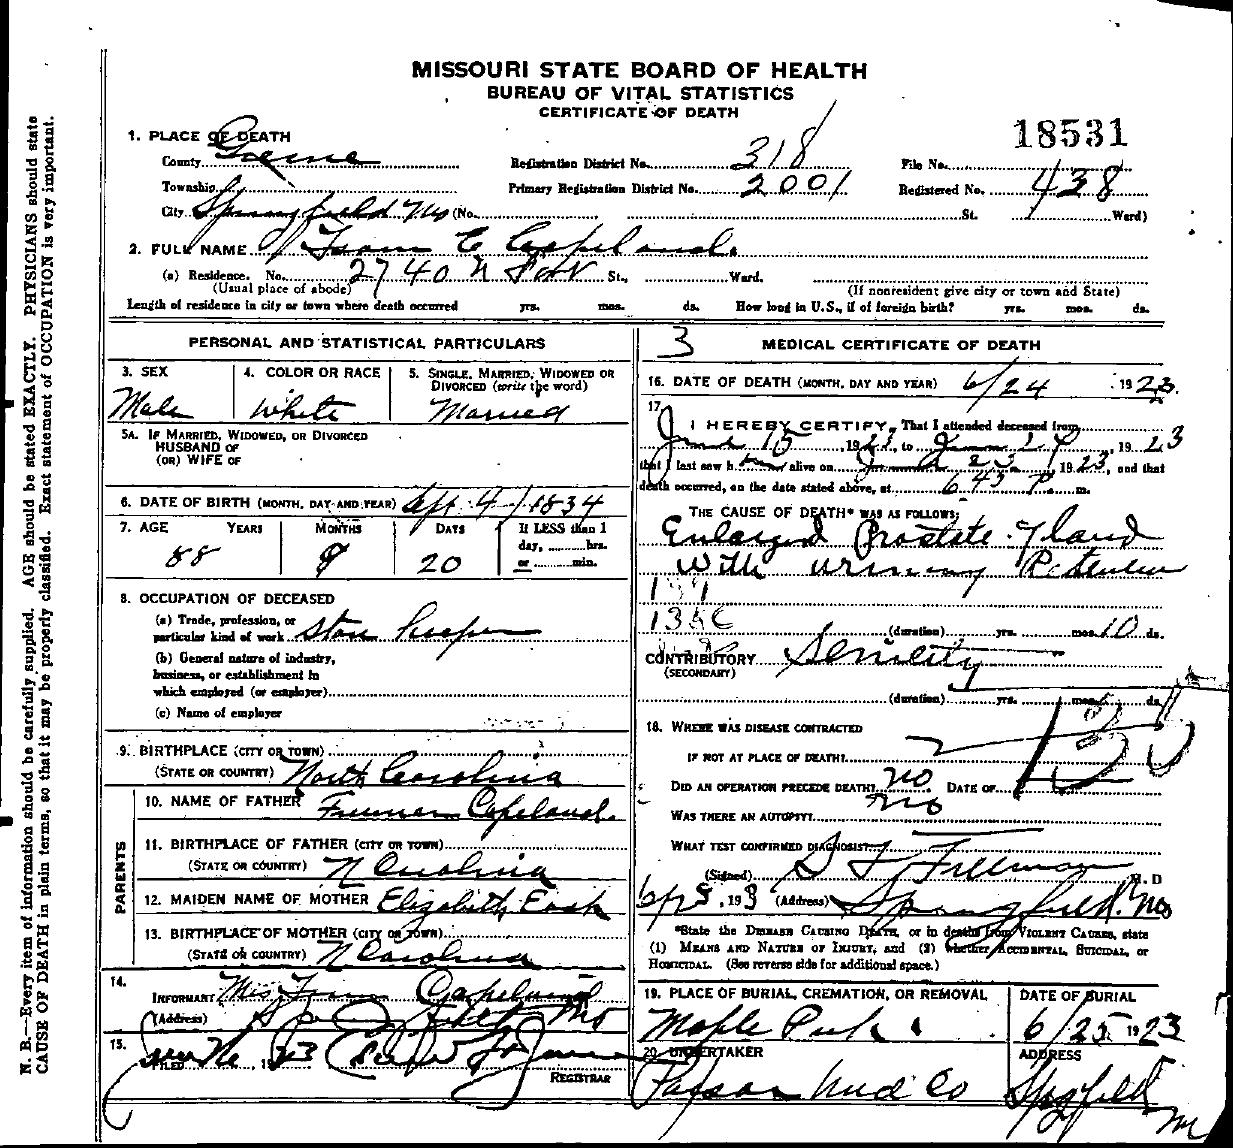 MISSOURI STATE BOARD OF HEALTH
BUREAU OF VITAL STATISTICS
CERTIFICATE OF DEATH
18531
1. PLACE OF DEATH
County Greene Registration District No. 318 File No.
Township Primary Registration District No. 2001 Registered No. 438
City Springfield Mo (No. St. Ward)
2. FULL NAME C Copeland
(a) Residence. No. 2740 N St., Ward.
(Usual place of abode) (If nonresident give city or town and State)
Length of residence in city or town where death occurred yrs. mos. ds. How long in U.S., if of foreign birth? yrs. mos. ds.
PERSONAL AND STATISTICAL PARTICULARS
3. SEX 4. COLOR OR RACE 5. SINGLE, MARRIED, WIDOWED OR
DIVORCED (write the word)
Male White Married
5A. IF MARRIED, WIDOWED, OR DIVORCED
HUSBAND OF
(OR) WIFE OF
6. DATE OF BIRTH (MONTH, DAY AND YEAR) 4 1834
7. AGE YEARS MONTHS DAYS If LESS than 1
day, hrs.
or min.
88 9 20
8. OCCUPATION OF DECEASED
(a) Trade, profession, or
particular kind of work Store Keeper
(b) General nature of industry,
business, or establishment in
which employed (or employer)
(c) Name of employer
9. BIRTHPLACE (CITY OR TOWN)
(STATE OR COUNTRY) North Carolina
PARENTS
10. NAME OF FATHER Copeland
11. BIRTHPLACE OF FATHER (CITY OR TOWN)
(STATE OR COUNTRY) N Carolina
12. MAIDEN NAME OF MOTHER Elizabeth
13. BIRTHPLACE OF MOTHER (CITY OR TOWN)
(STATE OR COUNTRY) N Carolina
14.
INFORMANT Copeland
(Address) Mo
15.
FILED 1923
REGISTRAR
3 MEDICAL CERTIFICATE OF DEATH
16. DATE OF DEATH (MONTH, DAY AND YEAR) 6/24 1923
17.
I HEREBY CERTIFY, That I attended deceased from
June 15, 1923, to June 24, 1923
that I last saw h alive on June 23, 1923, and that
death occurred, on the date stated above, at 6 45 P. m.
THE CAUSE OF DEATH* WAS AS FOLLOWS:
Enlarged Prostate Gland
with urinary Retention
(duration) yrs. mos. 10 ds.
CONTRIBUTORY Senility
(SECONDARY)
(duration) yrs. mos. ds.
18. WHERE WAS DISEASE CONTRACTED
IF NOT AT PLACE OF DEATH?
DID AN OPERATION PRECEDE DEATH? no DATE OF
WAS THERE AN AUTOPSY? no
WHAT TEST CONFIRMED DIAGNOSIS?
(Signed) S F Freeman M. D
(Address) Springfield Mo
*State the DISEASE CAUSING DEATH, or in deaths from VIOLENT CAUSES, state
(1) MEANS AND NATURE OF INJURY, and (2) whether ACCIDENTAL, SUICIDAL, or
HOMICIDAL. (See reverse side for additional space.)
19. PLACE OF BURIAL, CREMATION, OR REMOVAL DATE OF BURIAL
Maple Park 6/25 1923
20. UNDERTAKER ADDRESS
Und Co Spgfield
Mo
N. B.—Every item of information should be carefully supplied. AGE should be stated EXACTLY. PHYSICIANS should state
CAUSE OF DEATH in plain terms, so that it may be properly classified. Exact statement of OCCUPATION is very important.